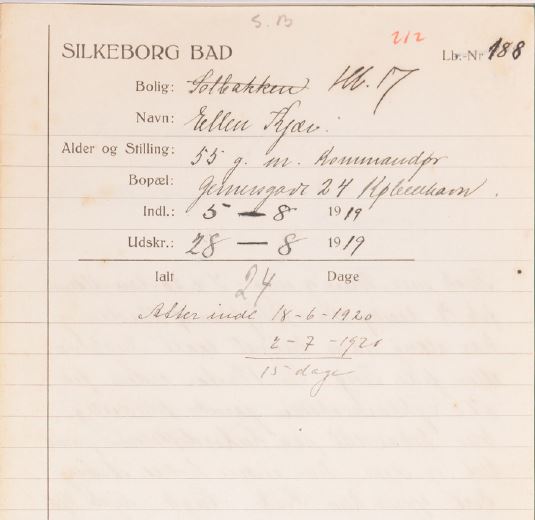 S. B
212
SILKEBORG BAD Lb.-Nr 188
Bolig: Solbakken Hb. 17
Navn: Ellen Kjær.
Alder og Stilling: 55 g. m. Kommandør
Bopæl: 24 København.
Indl.: 5 — 8 1919
Udskr.: 28 — 8 1919
Ialt 24 Dage
Atter indl 18-6-1920
2-7-1920
15 dage